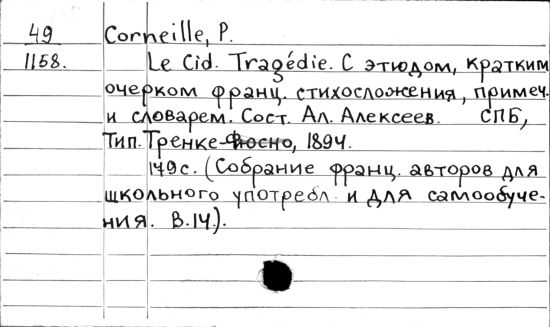 49 Corneille, P.
1158. Le Cid. Tragédie. С этюдом, кратким
очерком франц. стихосложения, примеч.
и словарем. Сост. Ал. Алексеев. СПБ,
Тип. Тренке-Фюсно, 1894.
179с. (Собрание франц. авторов для
школьного употребл. и для самообуче-
ния. В.14).